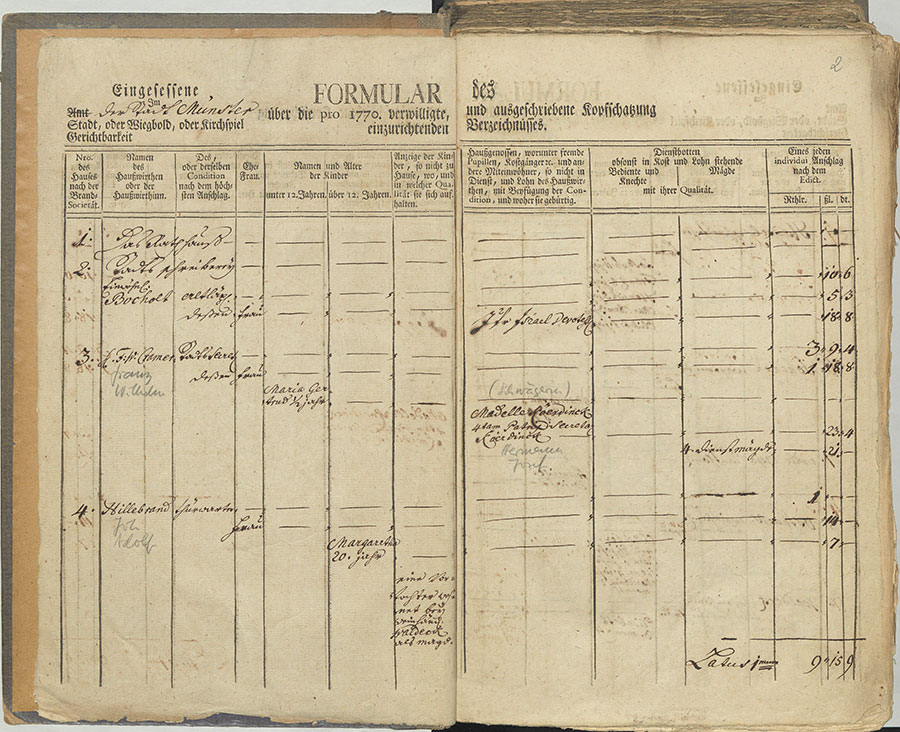 2
Eingesessene
Im
Amt der Stadt Münster
Stadt, oder Wiegbold, oder Kirchspiel
Gerichtbarkeit
FORMULAR
über die pro 1770. verwilligte,
einzurichtenden
des
und ausgeschriebene Kopfschatzung
Verzeichnüsses.
Nro. des Hauses nach der Brand-Societät.
Namen des Haußwirthen oder der Haußwirthinn.
Des, oder derselben Condition nach dem höchsten Anschlag.
Ehe Frau.
Namen und Alter der Kinder
unter 12. Jahren.
über 12. Jahren.
Anzeige der Kinder, so nicht zu Hause, wo, und in welcher Qualität sie sich aufhalten.
Haußgenossen, worunter fremde Pupillen, Kostgängere, und andere Miteinwohner, so nicht in Dienst, und Lohn des Haußwirthen, mit Beyfügung der Condition, und woher sie gebürtig.
Dienstbotten
obsonst in Kost und Lohn stehende
Bediente und Knechte
Mägde
mit ihrer Qualität.
Eines jeden individui Anschlag nach dem Edict.
Rthlr.
ßl.
dt.
1. Das Rathhauß
2. Stadts schreiberey
10 6
Bocholt
5 3
deßen frau
18 8
3. Cramer
3 9 4
Franz
Wilhelm
deßen frau
1 18 8
Maria Ger
trud ½ jahr
(Schwägerin)
Madelle Coerdinck
23 4
Coerdinck
Hermann
Josef
4 dienstmägde
21
4. Hillebrand
1
Joh
Adolf
frau
14
Margaretha
20. jahr
7
eine Vor
tochter
als magd.
Latus 1mum
9 15 9